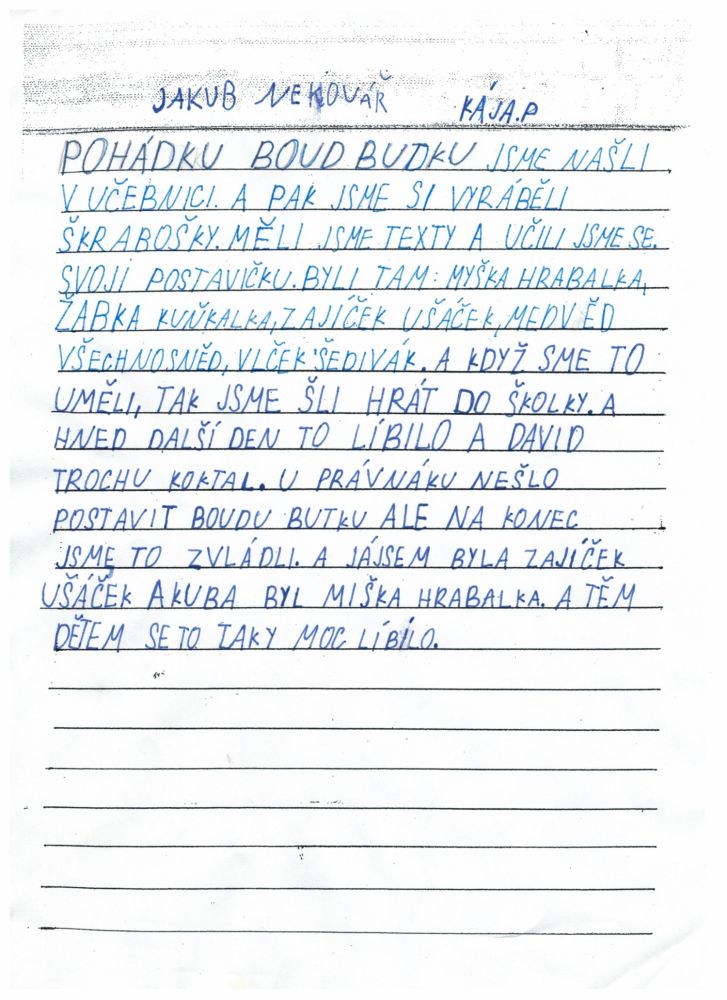 JAKUB NEKOVÁŘ KÁJA.P
POHÁDKU BOUD BUDKU JSME NAŠLI
V UČEBNICI. A PAK JSME SI VYRÁBĚLI
ŠKRABOŠKY. MĚLI JSME TEXTY A UČILI JSME SE.
SVOJI POSTAVIČKU. BYLI TAM: MYŠKA HRABALKA,
ŽABKA KUŇKALKA, ZAJÍČEK UŠÁČEK, MEDVĚD
VŠECHNOSNĚD, VLČEK ŠEDIVÁK. A KDYŽ SME TO
UMĚLI, TAK JSME ŠLI HRÁT DO ŠKOLKY. A
HNED DALŠÍ DEN TO LÍBILO A DAVID
TROCHU KOKTAL. U PRÁVNÁKU NEŠLO
POSTAVIT BOUDU BUTKU ALE NA KONEC
JSME TO ZVLÁDLI. A JÁJSEM BYLA ZAJÍČEK
UŠÁČEK A KUBA BYL MIŠKA HRABALKA. A TĚM
DĚTEM SE TO TAKY MOC LÍBILO.